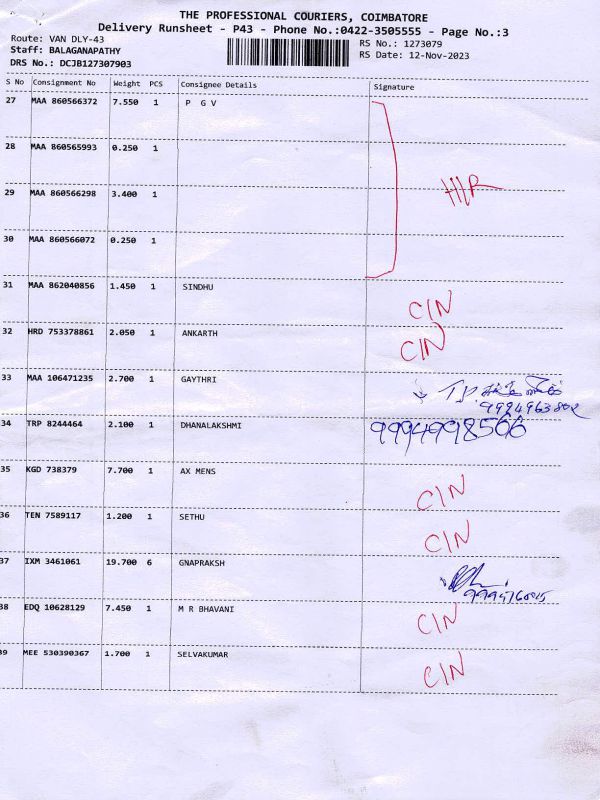 THE PROFESSIONAL COURIERS, COIMBATORE
Delivery Runsheet - P43 - Phone No.:0422-3505555 - Page No.:3
Route: VAN DLY-43 RS No.: 1273079
Staff: BALAGANAPATHY RS Date: 12-Nov-2023
DRS No.: DCJB127307903
S No Consignment No Weight PCS Consignee Details Signature
27 MAA 860566372 7.550 1 P G V
28 MAA 860565993 0.250 1
29 MAA 860566298 3.400 1
30 MAA 860566072 0.250 1
31 MAA 862040856 1.450 1 SINDHU C/N
32 HRD 753378861 2.050 1 ANKARTH C/N
33 MAA 106471235 2.700 1 GAYTHRI
9924963802
34 TRP 8244464 2.100 1 DHANALAKSHMI 9994998566
35 KGD 738379 7.700 1 AX MENS C/N
36 TEN 7589117 1.200 1 SETHU C/N
37 IXM 3461061 19.700 6 GNAPRAKSH
38 EDQ 10628129 7.450 1 M R BHAVANI C/N
39 MEE 530390367 1.700 1 SELVAKUMAR C/N